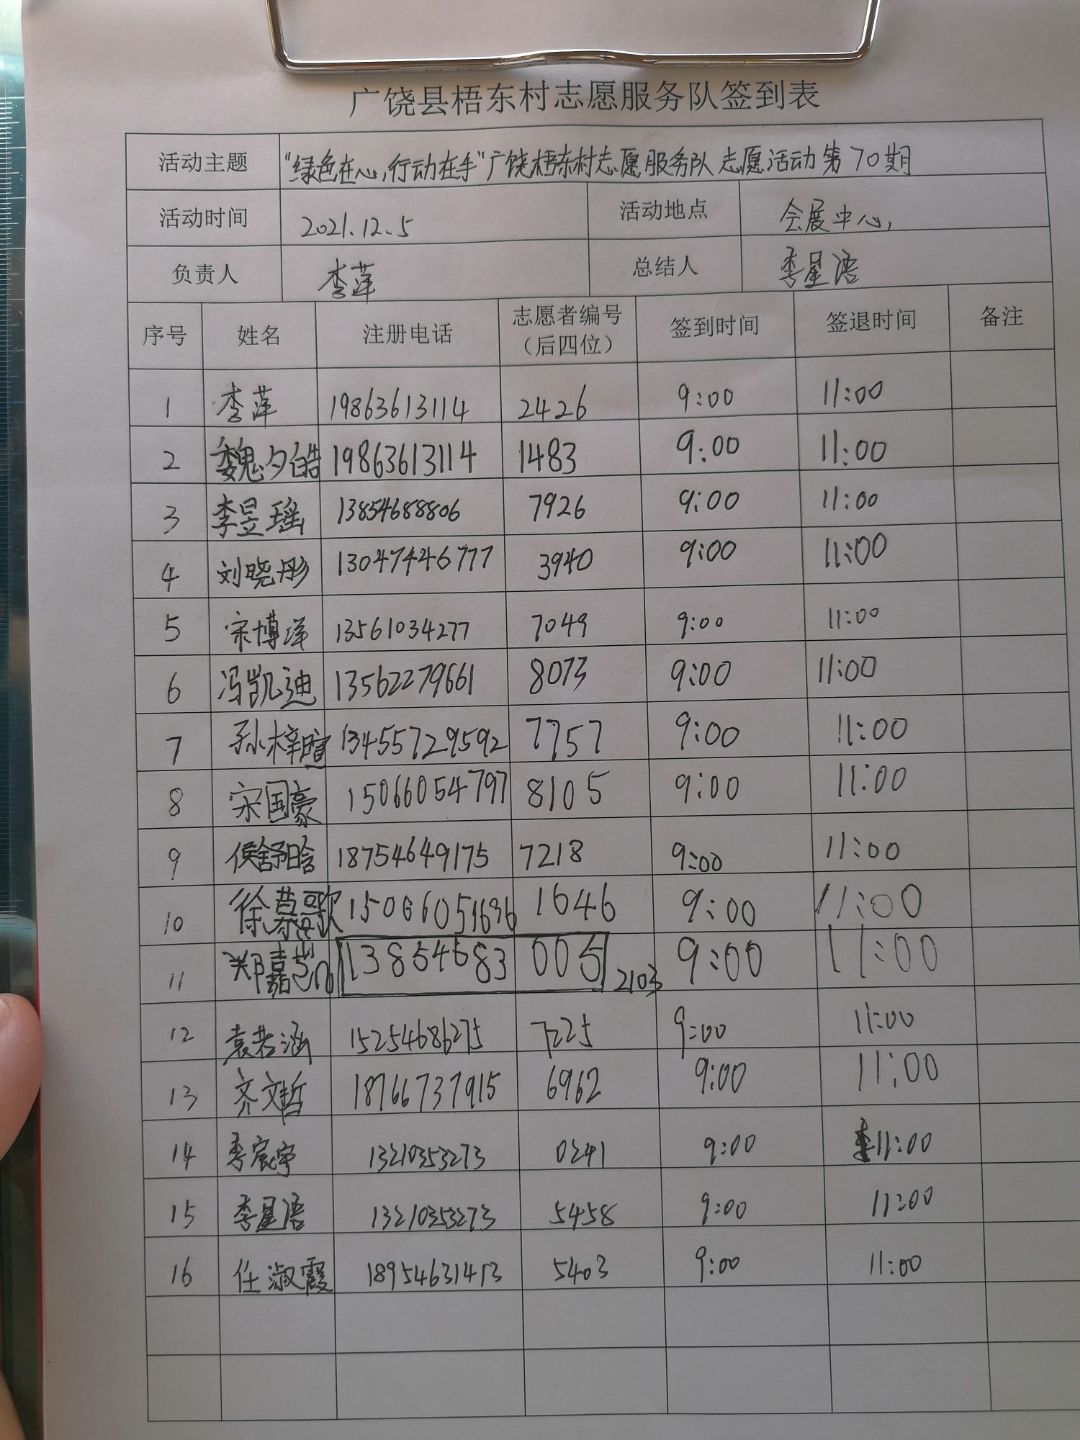 广饶县梧东村志愿服务队签到表
活动主题 "绿色在心,行动在手"广饶梧东村志愿服务队志愿活动第70期
活动时间 2021.12.5 活动地点 会展中心,
负责人 李萍 总结人 李星语
序号 姓名 注册电话 志愿者编号(后四位) 签到时间 签退时间 备注
1 李萍 19863613114 2426 9:00 11:00
2 魏夕皓 19863613114 1483 9:00 11:00
3 李昱瑶 13854688806 7926 9:00 11:00
4 刘晓彤 13047446777 3940 9:00 11:00
5 宋博洋 13561034277 7049 9:00 11:00
6 冯凯迪 13562279661 8073 9:00 11:00
7 孙梓暄 13455729592 7757 9:00 11:00
8 宋国豪 15066054797 8105 9:00 11:00
9 侯舒晗 18754649175 7218 9:00 11:00
10 徐慕歌 1646 9:00 11:00
11 郑嘉艺 13854683005 2103 9:00 11:00
12 袁若涵 15254686275 7225 9:00 11:00
13 齐文哲 18766737915 6962 9:00 11:00
14 李宸宇 13210353273 0241 9:00 11:00
15 李星语 13210353273 5458 9:00 11:00
16 任淑霞 18954631413 5403 9:00 11:00